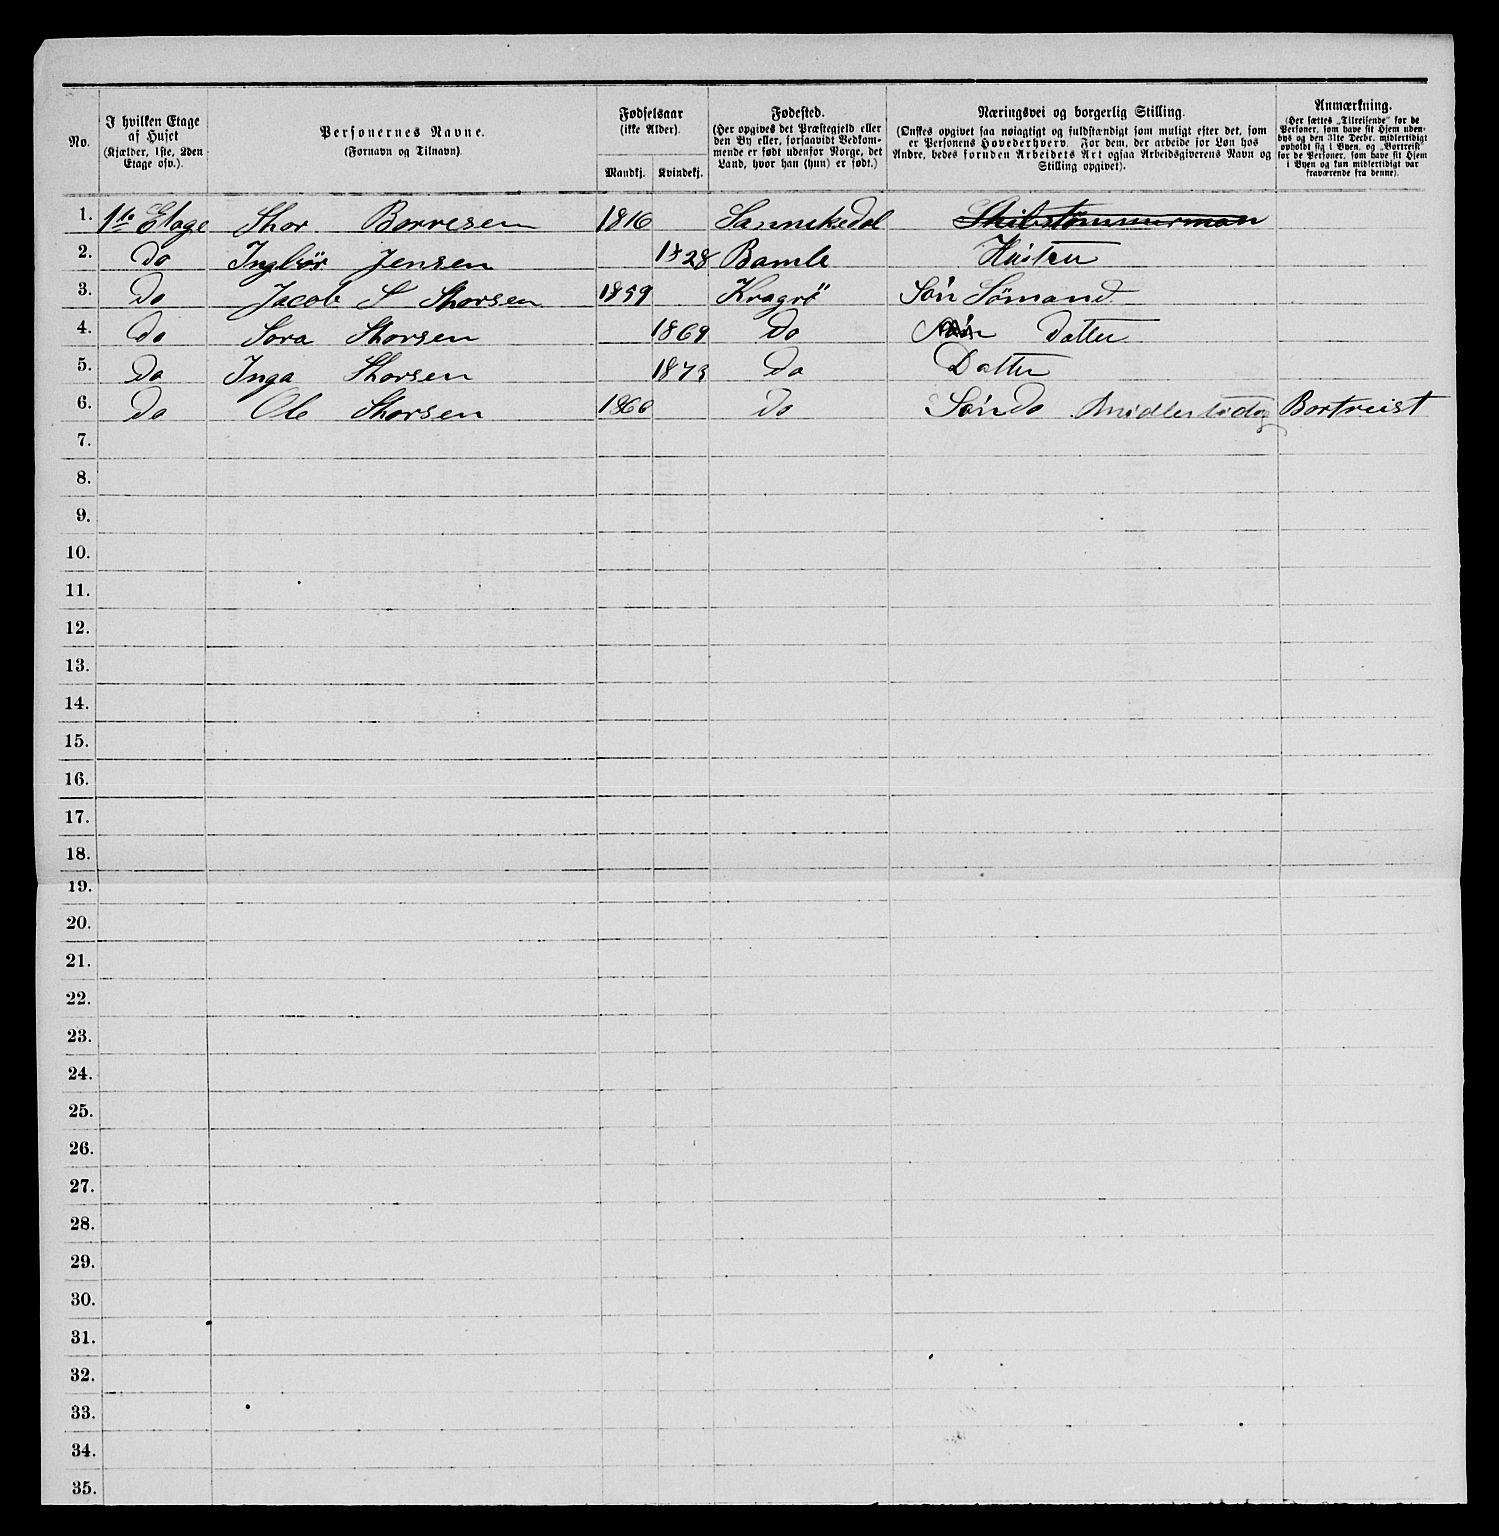 No. | I hvilken Etage af Huset (Kjælder, 1ste, 2den Etage osv.). | Personernes Navne. (Fornavn og Tilnavn). | Fødselsaar (ikke Alder). Mandkj. | Kvindekj. | Fødested. (Her opgives det Præstegjeld eller den By eller, forsaavidt Vedkommende er født udenfor Norge, det Land, hvor han (hun) er født.) | Næringsvei og borgerlig Stilling. (Ønskes opgivet saa nøiagtigt og fuldstændigt som muligt efter det, som er Personens Hovederhverv. For dem, der arbeide for Løn hos Andre, bedes foruden Arbeidets Art ogsaa Arbeidsgiverens Navn og Stilling opgivet). | Anmærkning. (Her sættes „Tilreisende" for de Personer, som have sit Hjem udenbys og den 31te Decbr. midlertidigt opholdt sig i Byen, og „Bortreist" for de Personer, som have sit Hjem i Byen og kun midlertidigt var fraværende fra denne).
1. 1te Etage Thor Borresen 1816 Sannikedal Skibstømmerman
2. Do Ingbör Jensen 1828 Bamle Hüstru
3. Do Jacob S Thorsen 1859 Kragrö Sön Sömand
4. Do Tora Thorsen 1869 Do Sön Datter
5. Do Inga Thorsen 1873 Do Datter
6. Do Ole Thorsen 1866 Do Sön Do Midlertidig Bortreist
7.
8.
9.
10.
11.
12.
13.
14.
15.
16.
17.
18.
19.
20.
21.
22.
23.
24.
25.
26.
27.
28.
29.
30.
31.
32.
33.
34.
35.